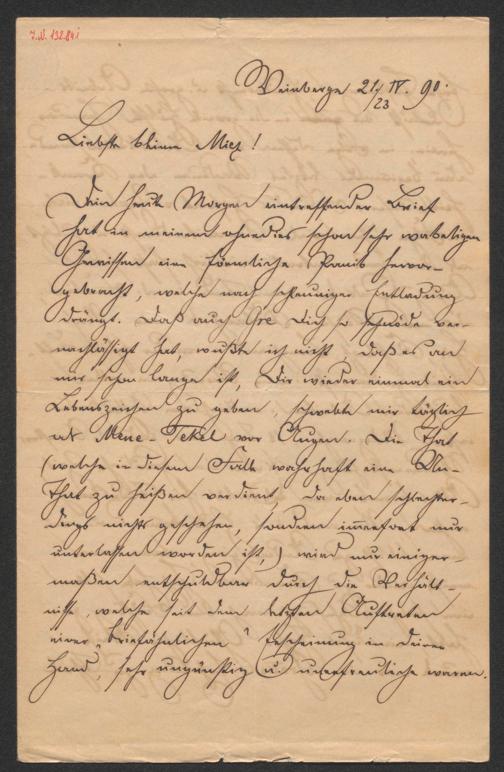 I.N. 192.841
Weinberge 21/23 IV. 90.
Liebste kleine Miez!
Dein heute Morgen eintreffender Brief
hat in meinem ohnedies schon sehr wakeligen
Gewissen eine förmliche Panik hervor-
gebracht, welche nach schleuniger Entladung
drängt. Daß auch Dich so schnöde ver-
nachlässigt hat, wußte ich nicht, daß es an
mir schon lange ist, Dir wieder einmal ein
Lebenszeichen zu geben, schwebte mir täglich
als Mene-Tekel vor Augen. Die That
(welche in diesem Falle wahrhaft eine Un-
That zu heißen verdient, da eben schlechter-
dings nichts geschehen, sondern immerfort nur
unterlassen worden ist,) wird nur einiger-
maßen entschuldbar durch die Verhält-
nisse, welche seit dem letzten Auftreten
einer „briefähnlichen" Erscheinung in Deiner
Hand, sehr ungünstig u. unerfreuliche waren.